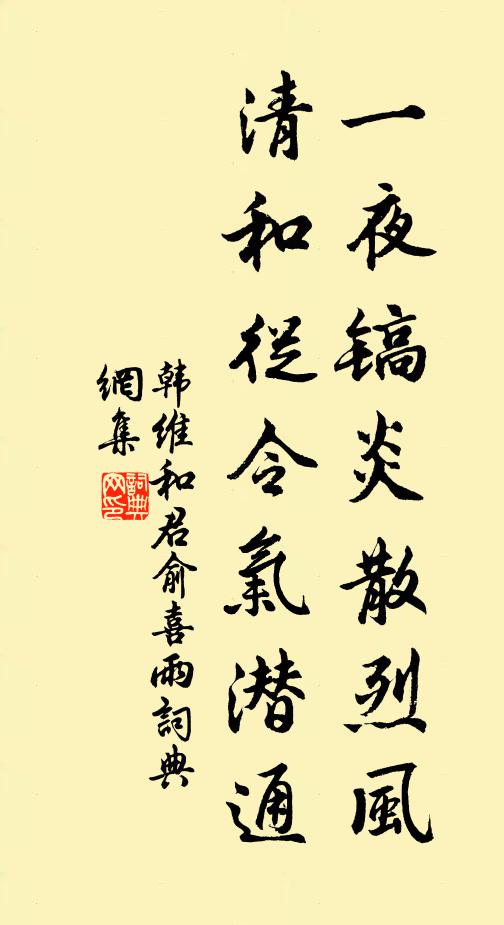 一夜镐炎散烈風
清和從令氣潜通
韩維和君俞喜雨詞典
網集
詞典
网印